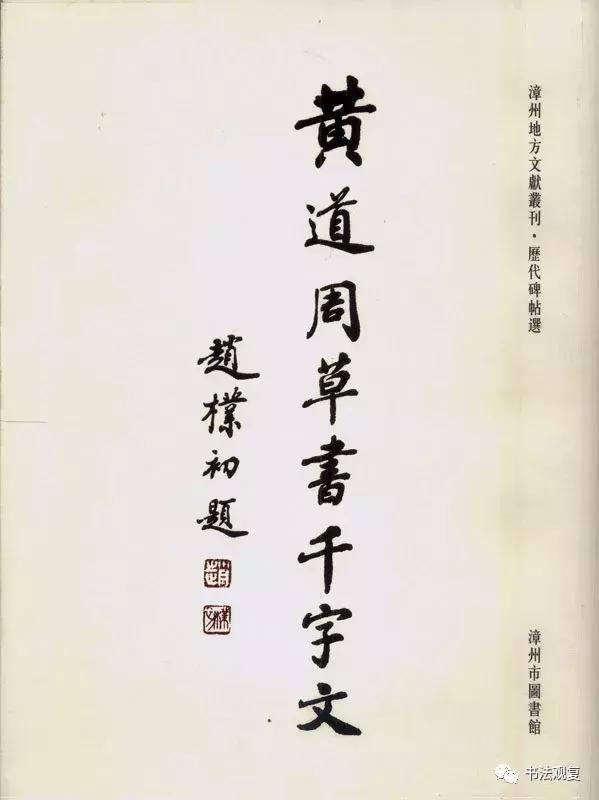 漳州地方文獻叢刊·歷代碑帖選
漳州市圖書館
黃道周草書千字文
趙樸初題
书法观复